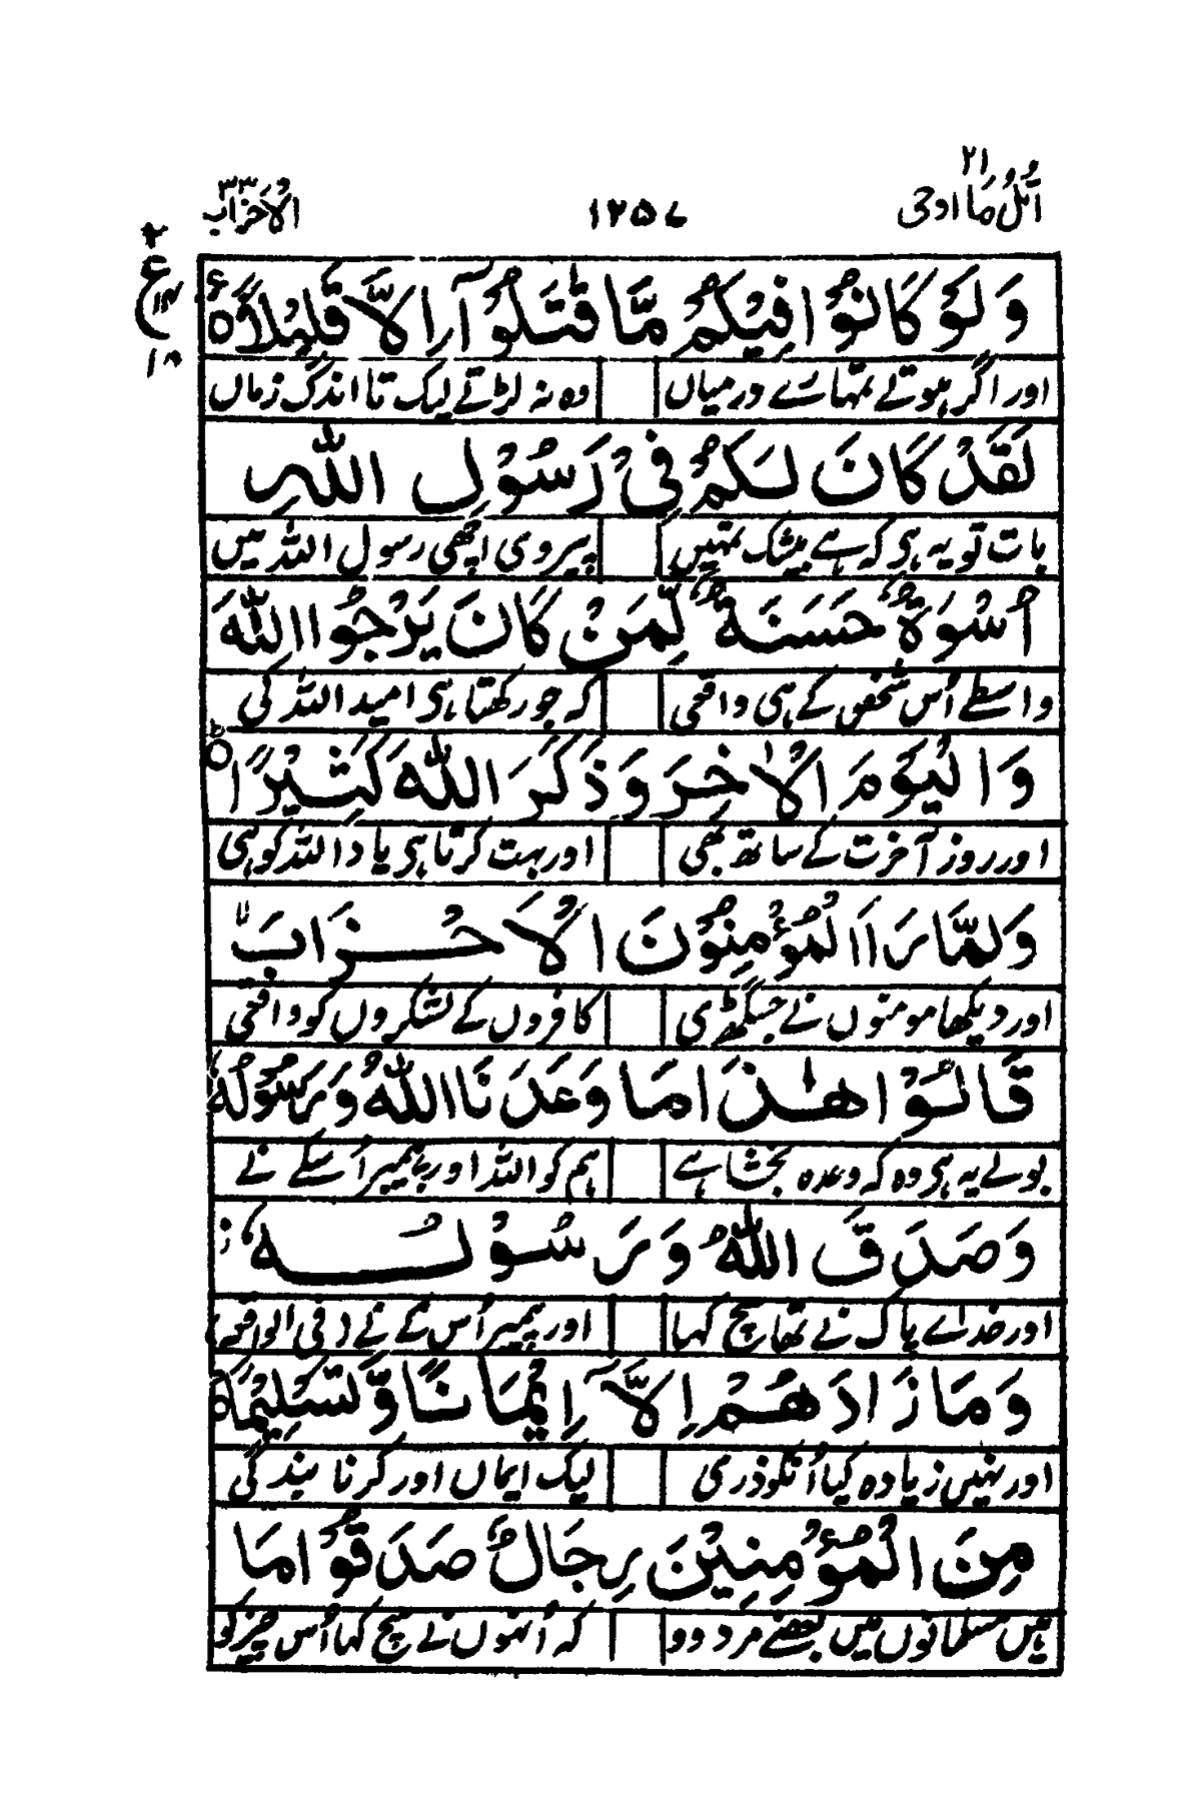 ۲۱
اُتْلُ مَا اوحی ۱۲۵۷ الْاَحْزَاب ۳۳
۲
ع
۱۸
وَلَوْ كَانُوْا فِيْكُمْ مَّا قٰتَلُوْۤا اِلَّا قَلِيْلًا ۠
اور اگر ہوتے تمہارے درمیاں وہ نہ لڑتے لیک تا اندک زماں
لَقَدْ كَانَ لَكُمْ فِيْ رَسُوْلِ اللّٰهِ
بات تو یہ ہی کہ ہے بیشک تمہیں پیروی اچھی رسول اللہ میں
اُسْوَةٌ حَسَنَةٌ لِّمَنْ كَانَ يَرْجُوا اللّٰهَ
واسطے اُس شخص کے ہی واقعی کہ جو رکھتا ہی امید اللہ کی
وَالْيَوْمَ الْاٰخِرَ وَذَكَرَ اللّٰهَ كَثِيْرًا ؕ
اور روز آخرت کے ساتھ بھی اور بہت کرتا ہی یاد اللہ کو ہی
وَلَمَّا رَاَ الْمُؤْمِنُوْنَ الْاَحْزَابَ ۙ
اور دیکھا مومنوں نے جسگھڑی کافروں کے لشکروں کو واقعی
قَالُوْا هٰذَا مَا وَعَدَنَا اللّٰهُ وَرَسُوْلُهٗ
بولے یہ ہی وہ کہ وعدہ بخشا ہے ہم کو اللہ اور پیمبر اُسکے نے
وَصَدَقَ اللّٰهُ وَرَسُوْلُهٗ ؗ
اور خداے پاک نے تھا سچ کہا اور پیمبر اُس کے نے فی الواقعہ
وَمَا زَادَهُمْ اِلَّاۤ اِيْمَانًا وَّتَسْلِيْمًا ؕ
اور نہیں زیادہ کیا اُنکو ذری لیک ایماں اور کرنا بندگی
مِنَ الْمُؤْمِنِيْنَ رِجَالٌ صَدَقُوْا مَا
ہیں مسلمانوں میں بعضے مرد وو کہ اُنہوں نے سچ کہا اُس چیز کو